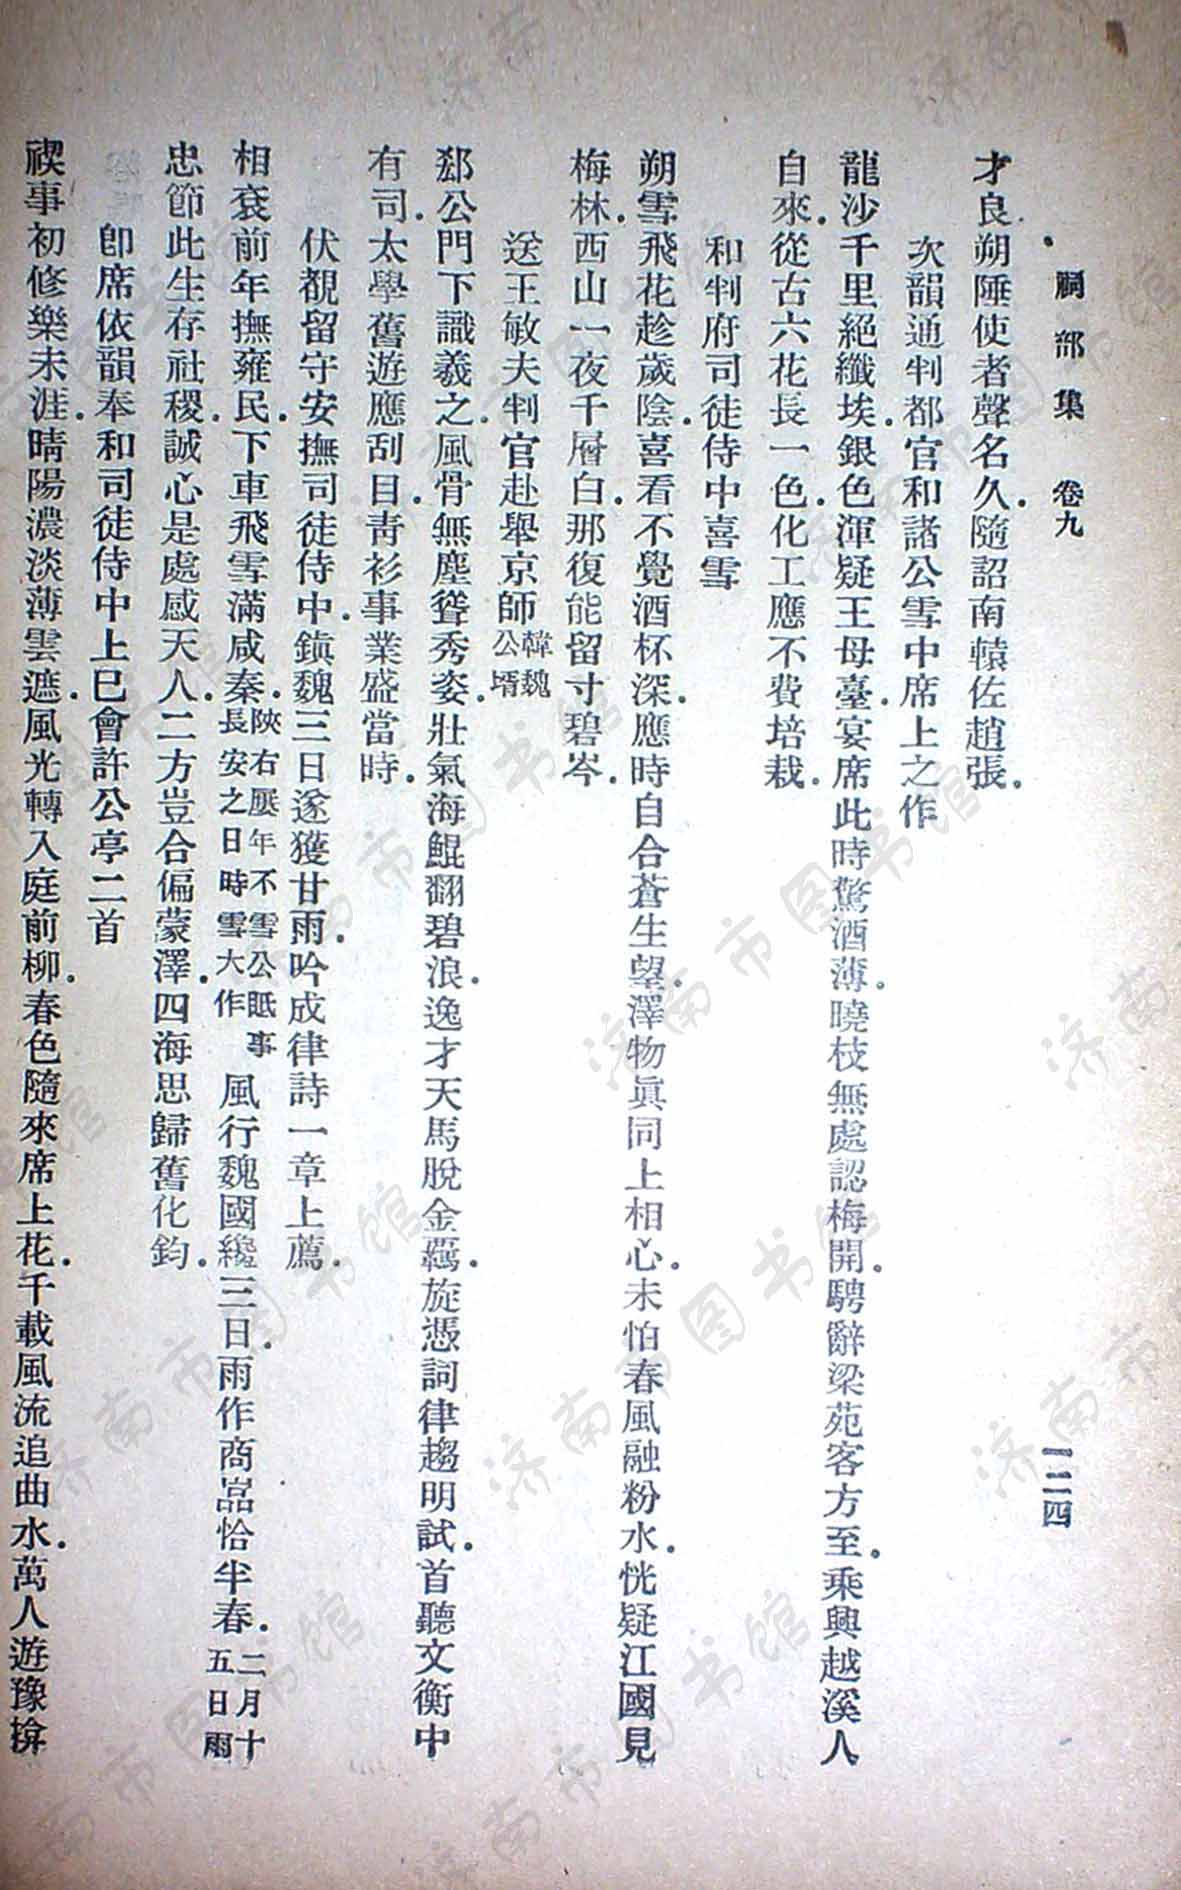 祠部集　卷九　一二四
才良朔陲使者聲名久隨詔南轅佐趙張
次韻通判都官和諸公雪中席上之作
龍沙千里絕纖埃銀色渾疑王母臺宴席此時驚酒薄曉枝無處認梅開騁辭梁苑客方至乘興越溪人
自來從古六花長一色化工應不費培栽
和判府司徒侍中喜雪
朔雪飛花趁歲陰喜看不覺酒杯深應時自合蒼生望澤物眞同上相心未怕春風融粉水恍疑江國見
梅林西山一夜千層白那復能留寸碧岑
送王敏夫判官赴舉京師韓魏公壻
郄公門下識羲之風骨無塵聳秀姿壯氣海鯤翻碧浪逸才天馬脫金羈旋憑詞律趨明試首聽文衡中
有司太學舊遊應刮目靑衫事業盛當時
伏覩留守安撫司徒侍中鎭魏三日遂獲甘雨吟成律詩一章上薦
相袞前年撫雍民下車飛雪滿咸秦陝右屢年不雪公眡事長安之日時雪大作風行魏國纔三日雨作商巖恰半春二月十五日雨
忠節此生存社稷誠心是處感天人二方豈合偏蒙澤四海思歸舊化鈞
卽席依韻奉和司徒侍中上巳會許公亭二首
禊事初修樂未涯晴陽濃淡薄雲遮風光轉入庭前柳春色隨來席上花千載風流追曲水萬人遊豫擀